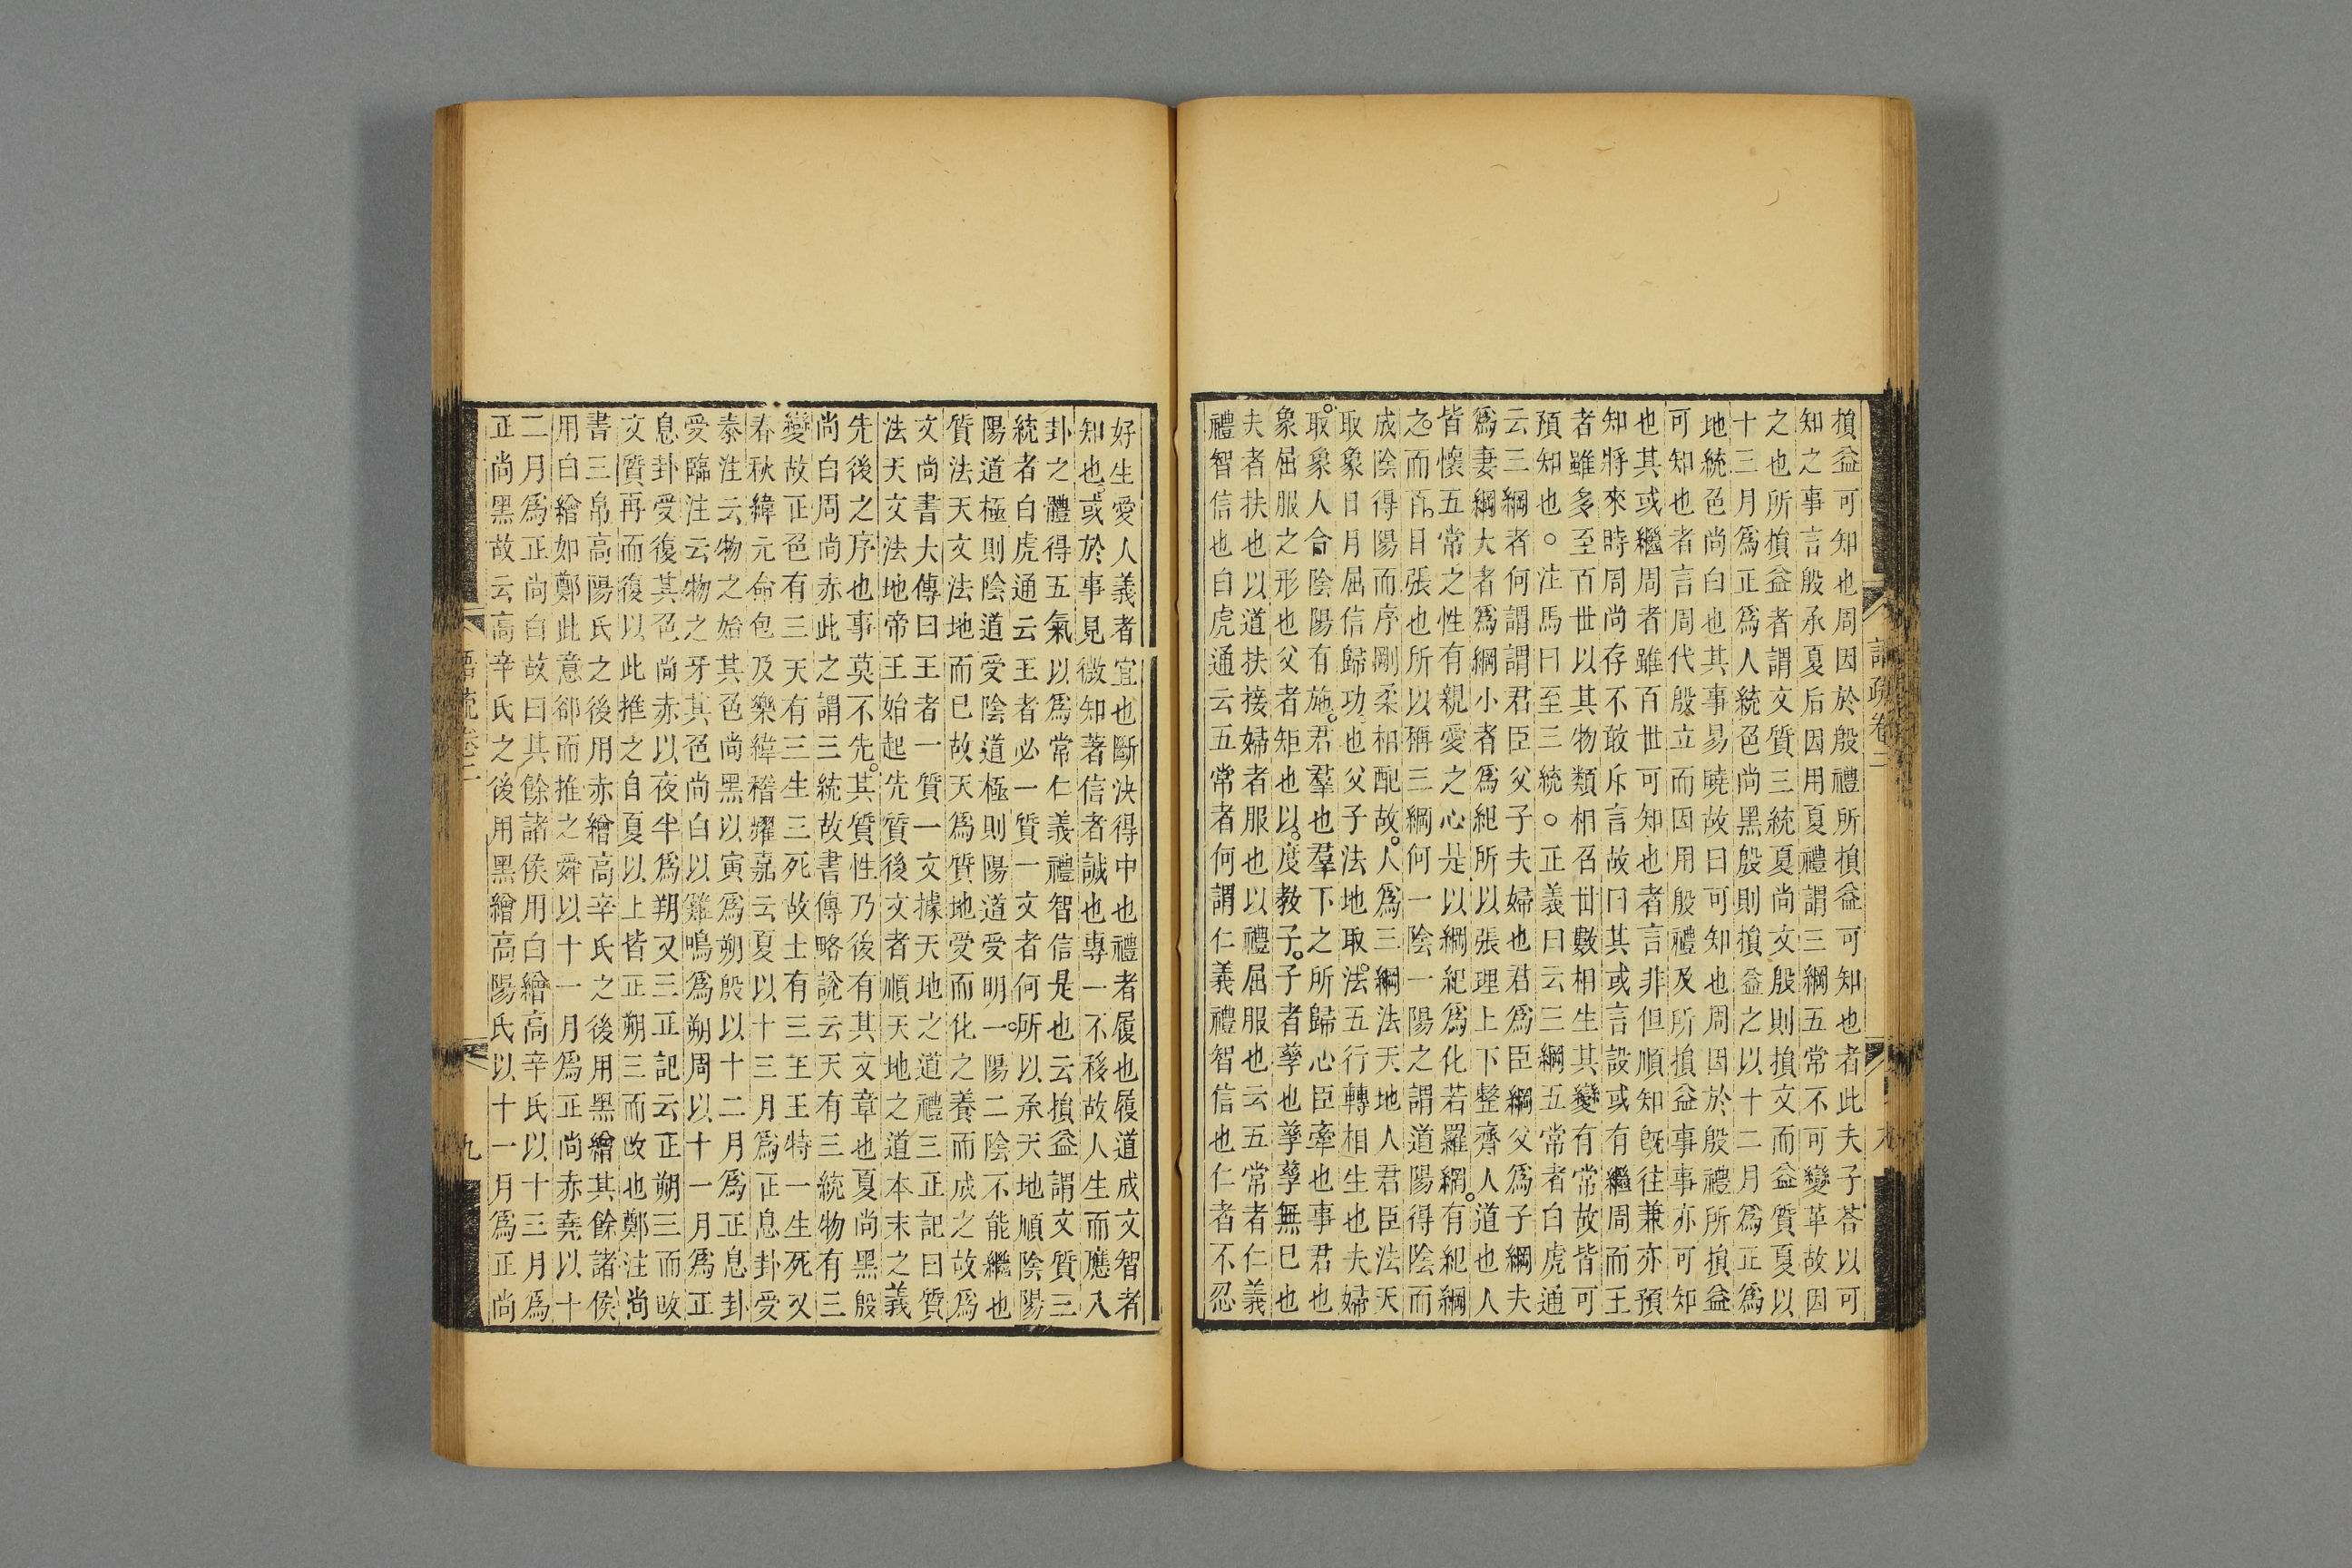 損益可知也周因於殷禮所損益可知也者此夫子荅以可
知之事言殷承夏后因用夏禮謂三綱五常不可變革故因
之也所損益者謂文質三統夏尚文殷則損文而益質夏以
十三月爲正爲人統色尚黑殷則損益之以十二月爲正爲
地統色尚白也其事易曉故曰可知也周因於殷禮所損益
可知也者言周代殷立而因用殷禮及所損益事事亦可知
也其或繼周者雖百世可知也者言非但順知旣往兼亦預
知將來時周尚存不敢斥言故曰其或言設或有繼周而王
者雖多至百世以其物類相召世數相生其變有常故皆可
預知也○注馬曰至三統○正義曰云三綱五常者白虎通
云三綱者何謂謂君臣父子夫婦也君爲臣綱父爲子綱夫
爲妻綱大者爲綱小者爲紀所以張理上下整齊人道也人
皆懷五常之性有親愛之心是以綱紀爲化若羅網。有紀綱
之。而百目張也所以稱三綱何一陰一陽之謂道陽得陰而
成陰得陽而序剛柔相配故。人爲三綱法天地人君臣法天
取象日月屈信歸功也父子法地取法。五行轉相生也夫婦
取。象人合陰陽有施。君羣也羣下之所歸心臣牽也事君也
象屈服之形也父者矩也以。度教子。子者孳也孳孳無已也
夫者扶也以道扶接婦者服也以禮屈服也云五常者仁義
禮智信也白虎通云五常者何謂仁義禮智信也仁者不忍
語疏卷二
九
好生愛人義者宜也斷決得中也禮者履也履道成文智者
知也。或於事見微知著信者誠也專一不移故人生而應八
卦之體得五氣以爲常仁義禮智信是也云損益謂文質三
統者白虎通云王者必一質一文者何。所以承天地順陰陽
陽道極則陰道受陰道極則陽道受明。一陽二陰不能繼也
質法天文法地而已故天爲質地受而化之養而成之故爲
文尚書大傳曰王者一質一文據天地之道禮三正記曰質
法天文法地帝王始起先質後文者順天地之道本末之義
先後之序也事莫不先。其質性乃後有其文章也夏尚黑殷
尚白周尚赤此之謂三統故書傳略說云天有三統物有三
變故正色有三天有三生三死故土有三王王特一生死又
春秋緯元命包及樂緯稽耀嘉云夏以十三月爲正息卦受
泰注云物之始其色尚黑以寅爲朔殷以十二月爲正息卦
受臨注云物之牙其色尚白以雞鳴爲朔周以十一月爲正
息卦受復其色尚赤以夜半爲朔又三正記云正朔三而改
文質再而復以此推之自夏以上皆正朔三而改也鄭注尚
書三帛高陽氏之後用赤繒高辛氏之後用黑繒其餘諸侯
用白繒如鄭此意卻而推之舜以十一月爲正尚赤堯以十
二月爲正尚白故曰其餘諸侯用白繒高辛氏以十三月爲
正尚黑故云高辛氏之後用黑繒高陽氏以十一月爲正尚
語疏卷二
九